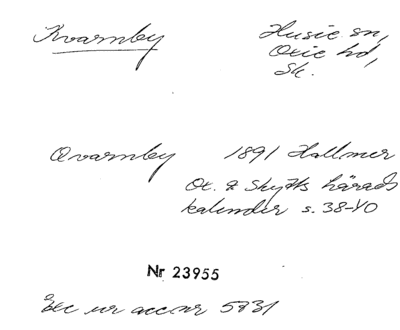 Kvarnby
Husie sn,
Oxie hd,
Sk.
Qvarnby 1891 Hallmer
Ox. & Skytts härads
kalender s. 38-40
Nr 23955
Exc ur acc nr 5831